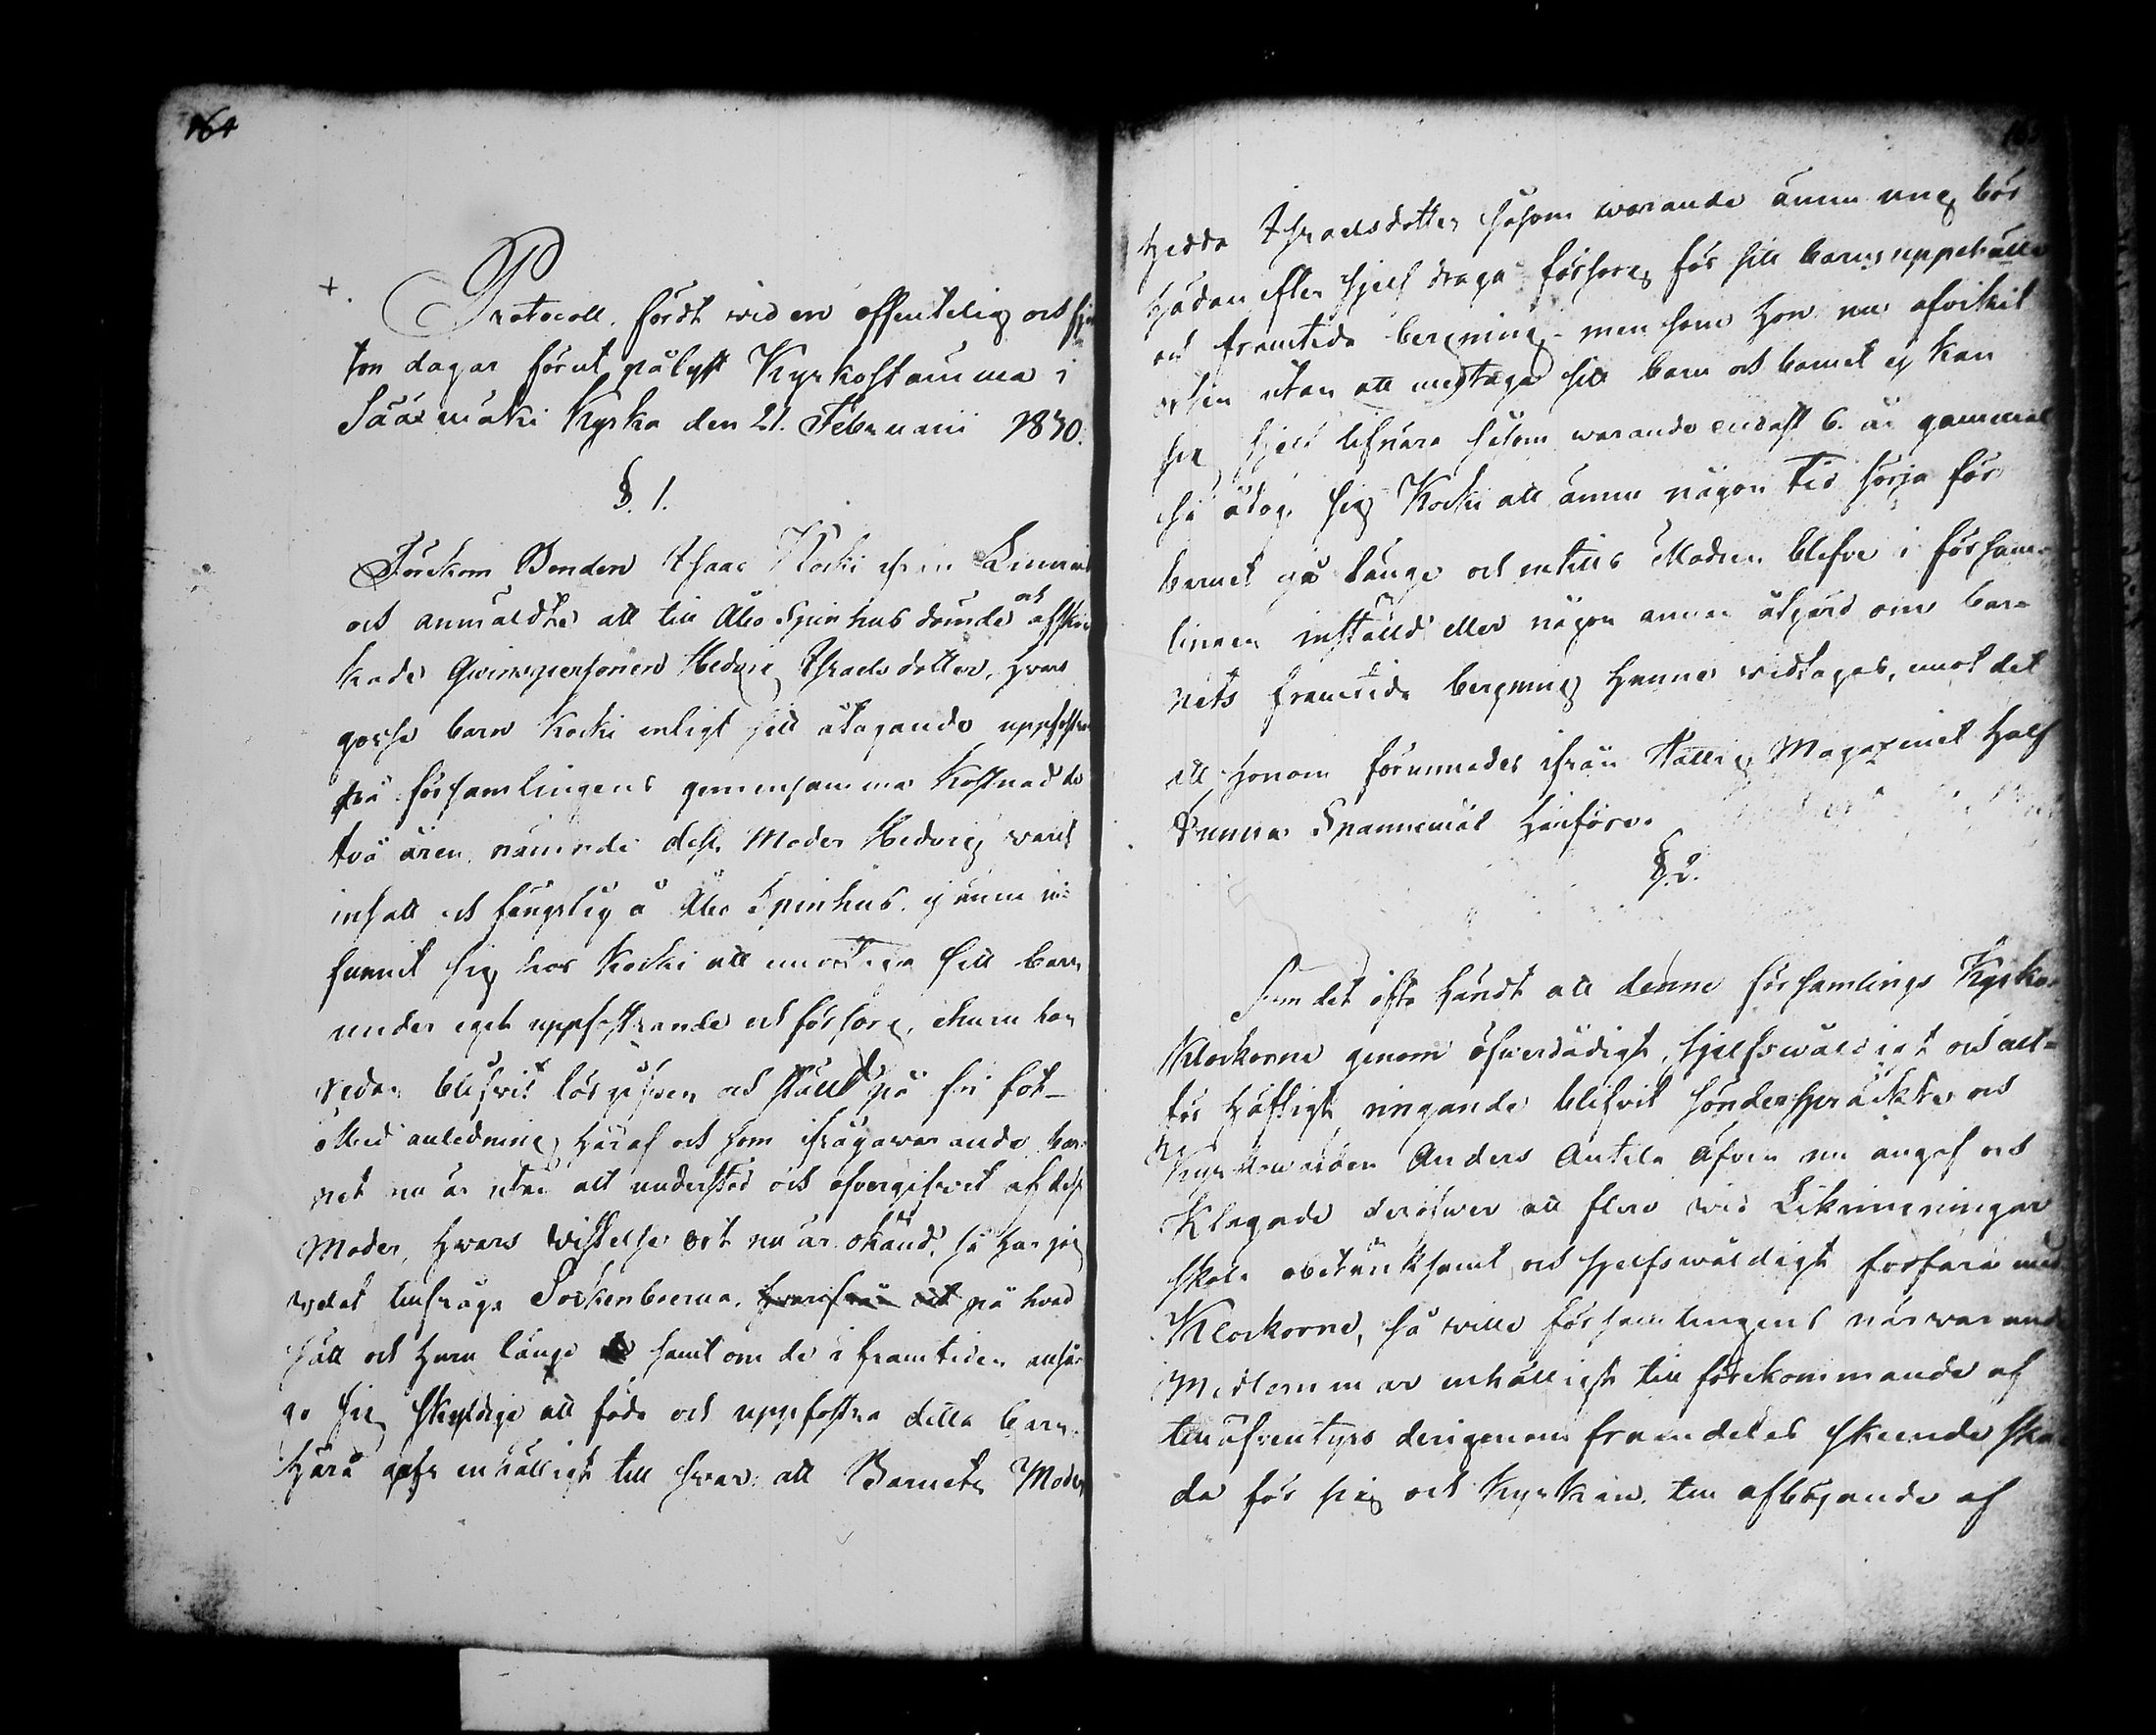 164
+.
Protocoll, fördt wid en offentelig och fjor
ton dagar förut pålyst Kyrkostämma i
Sääxmäki Kyrka den 21. Februarii 1830.
§. 1.
Förekom Bonden Isaac Kocki ifrån
och anmäldte att till Åbo Spinhus dömde och afskic
kade Qvinspersonen Hedvig Israelsdotter, hvars
gosse barn Kocki enligt sitt åtagande uppfostrat
på församlingens gemensamma kostnad de
två åren, nämnde dess Moder Hedvig warit
insatt och fängslig å Åbo Spinhus, ej ännu in-
funnit sig hos Kocki att emottaga sitt barn
under eget uppfostrande och försorg, ehuru hon
redan blifvit lösgifven och ställd på fri fot_
Med anledning häraf och som ifrågawarande bar
net nu är utan allt understöd och öfvergifvet af dess
Moder, hvars vistelse ort nu är okänd, så har jag
welat tillfråga Sockenboerna, hvarifrån och på hvad
sätt och huru länge samt om de i framtiden anse
ga sig skyldige att föda och uppfostra detta barn.
Härå gafs enhälligt till svar: att Barnets Moder
Hedda Israelsdotter såsom warande ännu ung bör
hädan efter sjelf draga försorg för sitt barns uppehälle
och framtida bergning - men som hon nu afvikit
orten utan att medtaga sitt barn och barnet ej kan
sig sjelf lifnära såsom warande endast 6. år gammal
så åtog sig Kocki att ännu någon tid sörja för
barnet så länge och intills Modren blefve i försam-
lingen inställd eller någon annan åtgärd om bar-
nets framtida bergning hunne widtagas, emot det
att honom förunnades ifrån Fattig Magazinet half
Tunna Spannemål härföre.
§. 2.
Som det ofta händt att denne församlings Kyrko-
Klockorne genom öfwerdådigt, sjelfswåldigt och allt-
för häftigt ringande blifvit sönderspräckte och
Kyrkowärden Anders Antila äfven nu angaf och
Klagade deröfwer att flere wid Likringningar
skola obetänksamt och sjelfswåldigt förfara med
Klockorne, så wille församlingens närwarande
Medlemmar enhälligt till förekommande af
tilläfventyrs derigenom framdeles skeende ska
da för sig och Kyrkan, till afböjande af